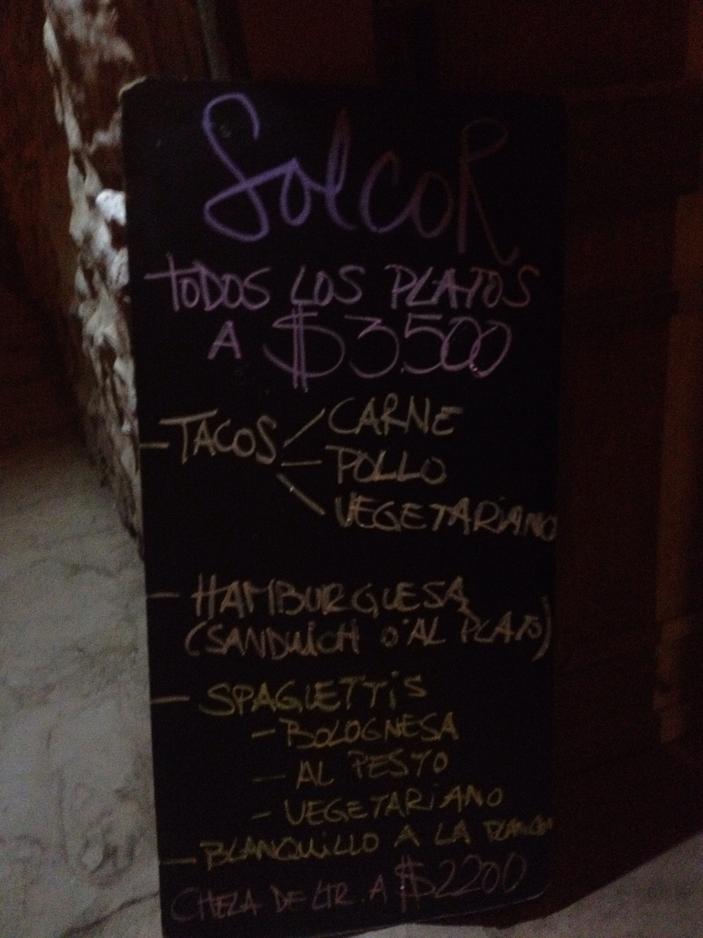 SolcoR
TODOS LOS PLATOS
A $3.500
- TACOS - CARNE
- POLLO
- VEGETARiANO
- HAMBURGUESA
(SANDWiCH O AL PLATO)
- SPAGLETTiS
- BOLOGNESA
- AL PESTO
- VEGETARiANO
- BLANQUiLLO A LA PLANCHA
CHELA DE LTR. A $2200